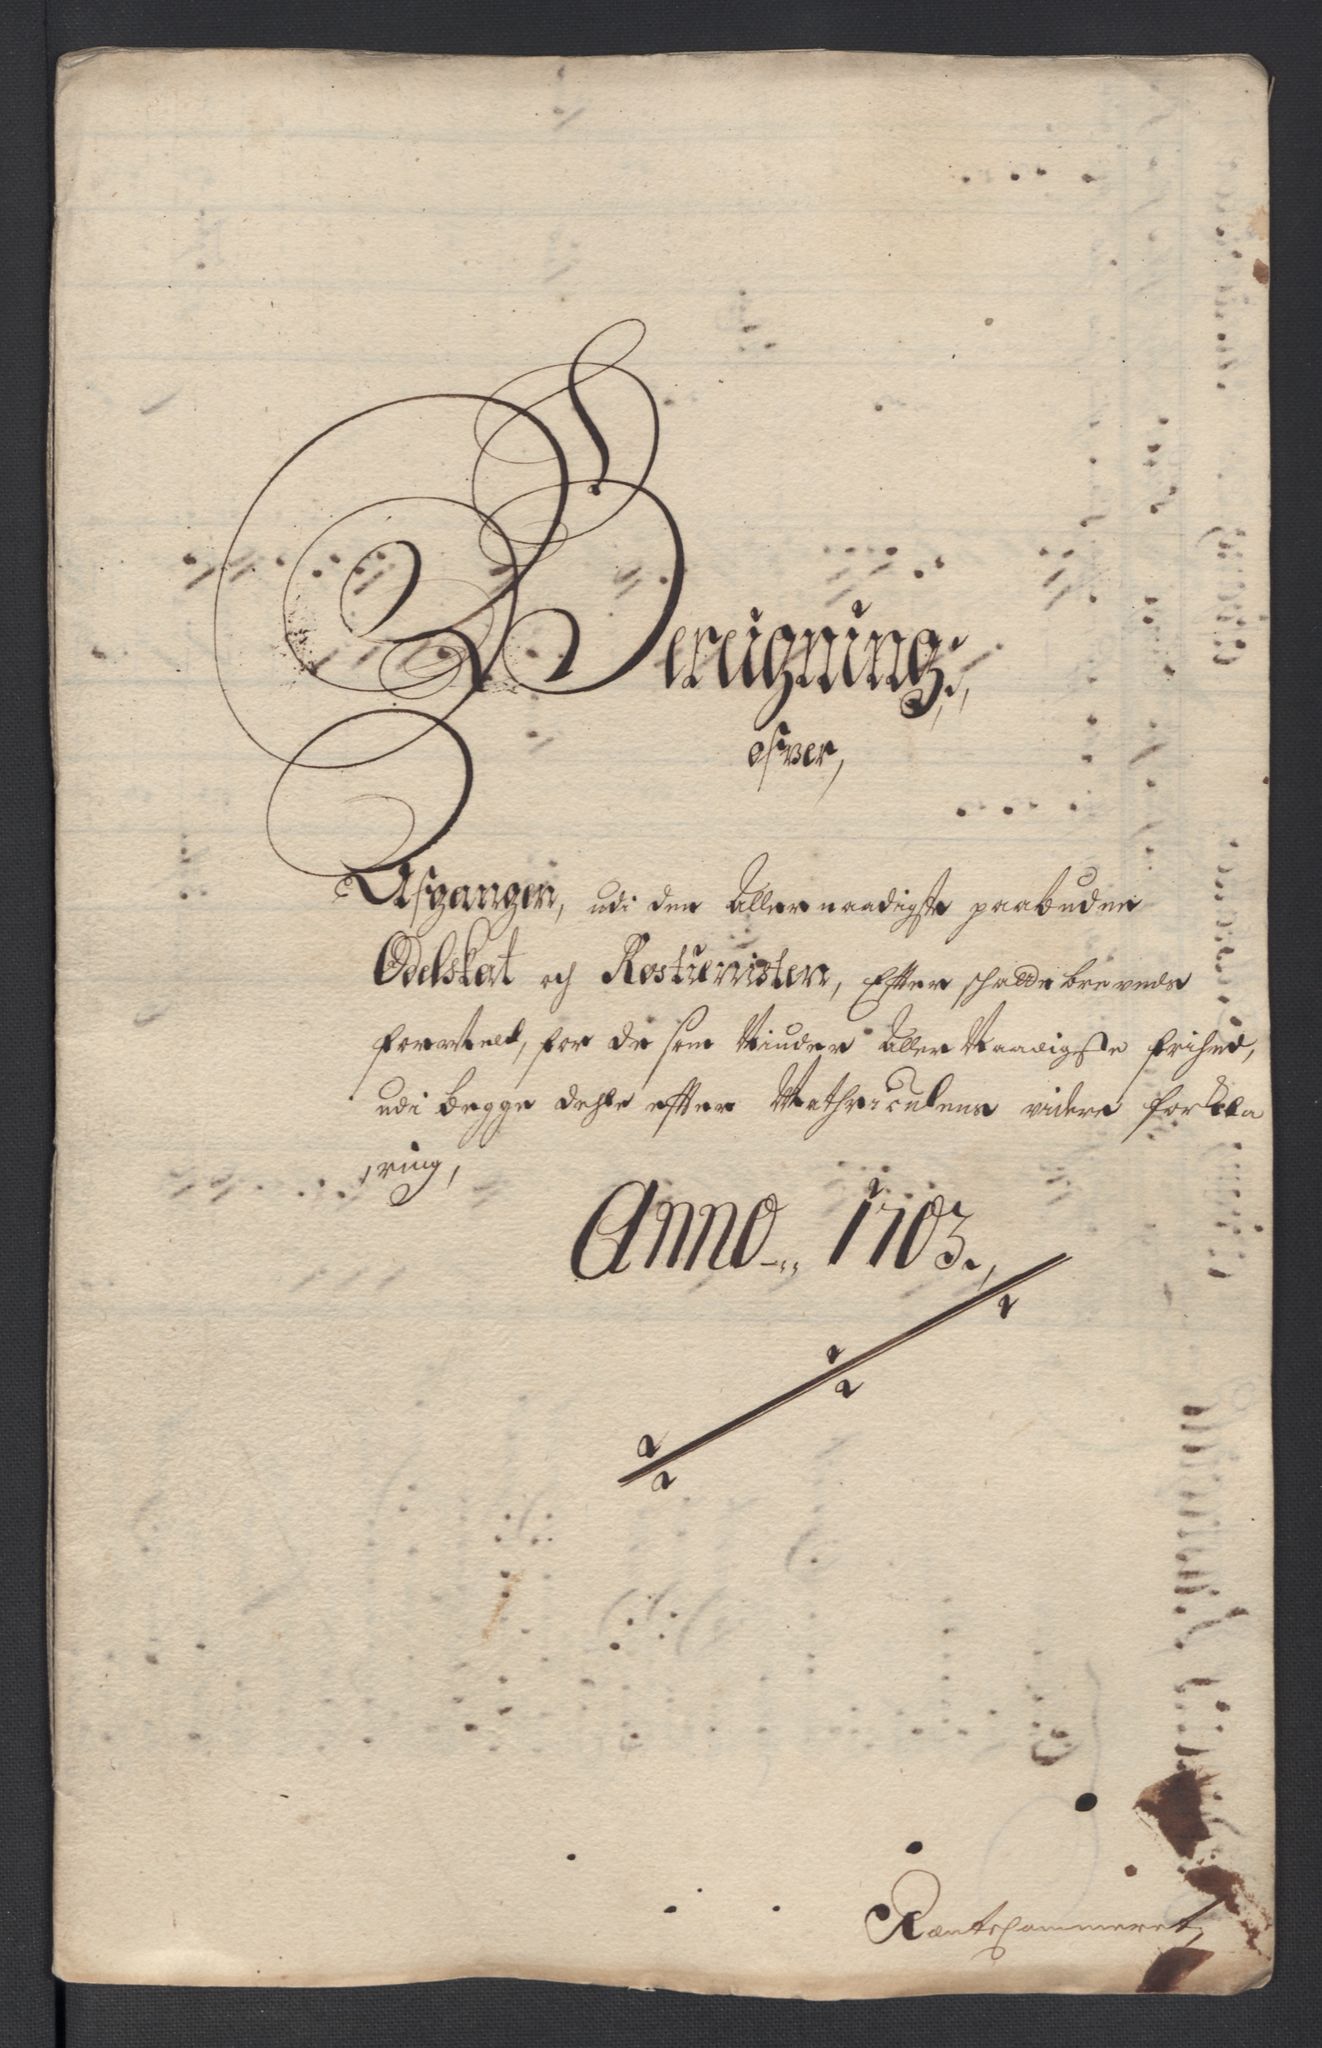 Bereigning,
ofver,
Afgangen, udi den Aller naadigste paabudne
Odelskat och Rostienisten, Efter schatte brevens
formeld, for de som Niuder Aller Naadigste frihed,
udi begge dehle efter Mathriculens videre forkla
ring,
Anno 1703.
Rentekammeret